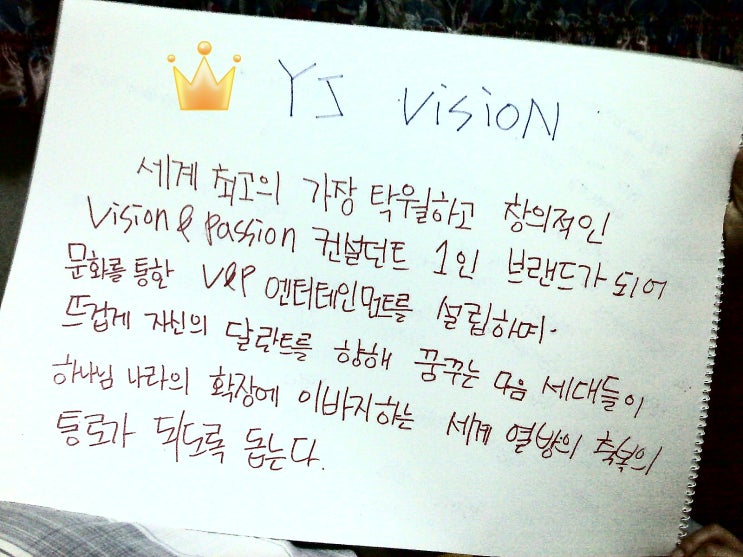 YJ VISION
세계 최고의 가장 탁월하고 창의적인
Vision & Passion 컨설턴트 1인 브랜드가 되어
문화를 통한 V&P 엔터테인먼트를 설립하며.
뜨겁게 자신의 달란트를 향해 꿈꾸는 다음 세대들이
하나님 나라의 확장에 이바지하는 세계 열방의 축복의
통로가 되도록 돕는다.